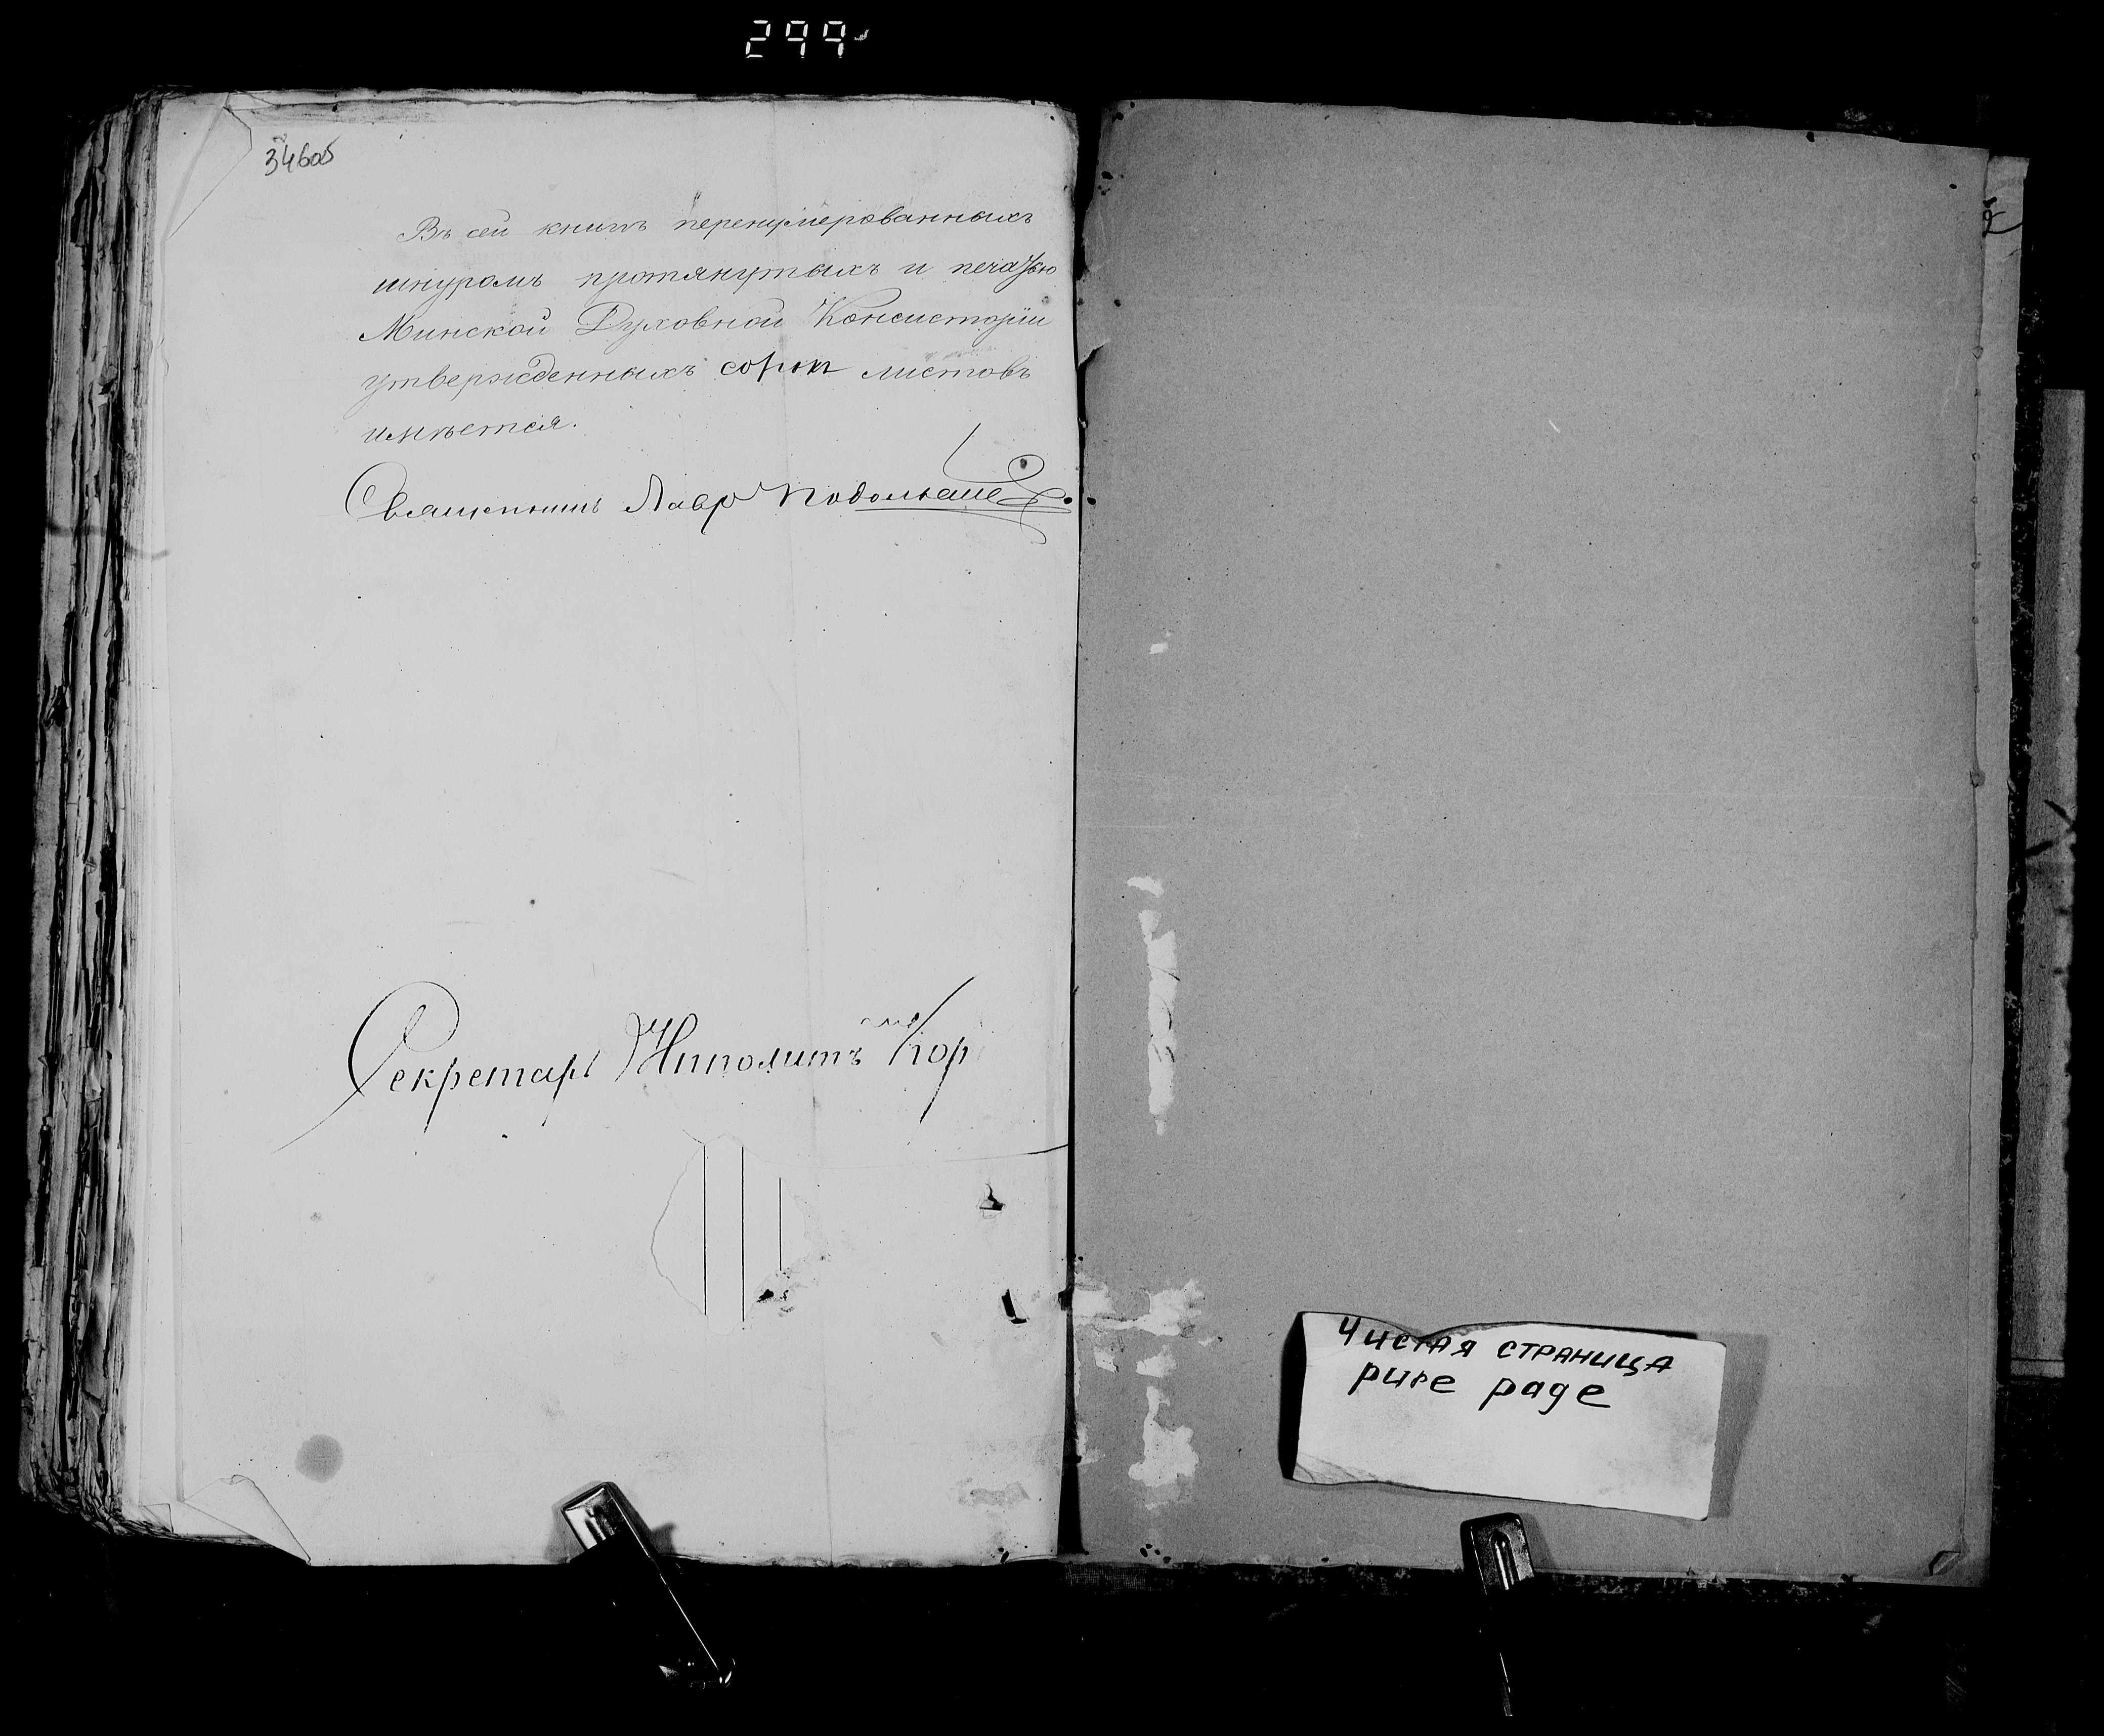 299
346об
Въ сей книгѣ перенумерованныхъ
шнуромъ протянутыхъ и печатью
Минской Духовной Консисторіи
утвержденныхъ сорок листовъ
имѣется.
Священникъ Лавр
Секретарь Ипполитъ Кор
Чистая страница
pure page